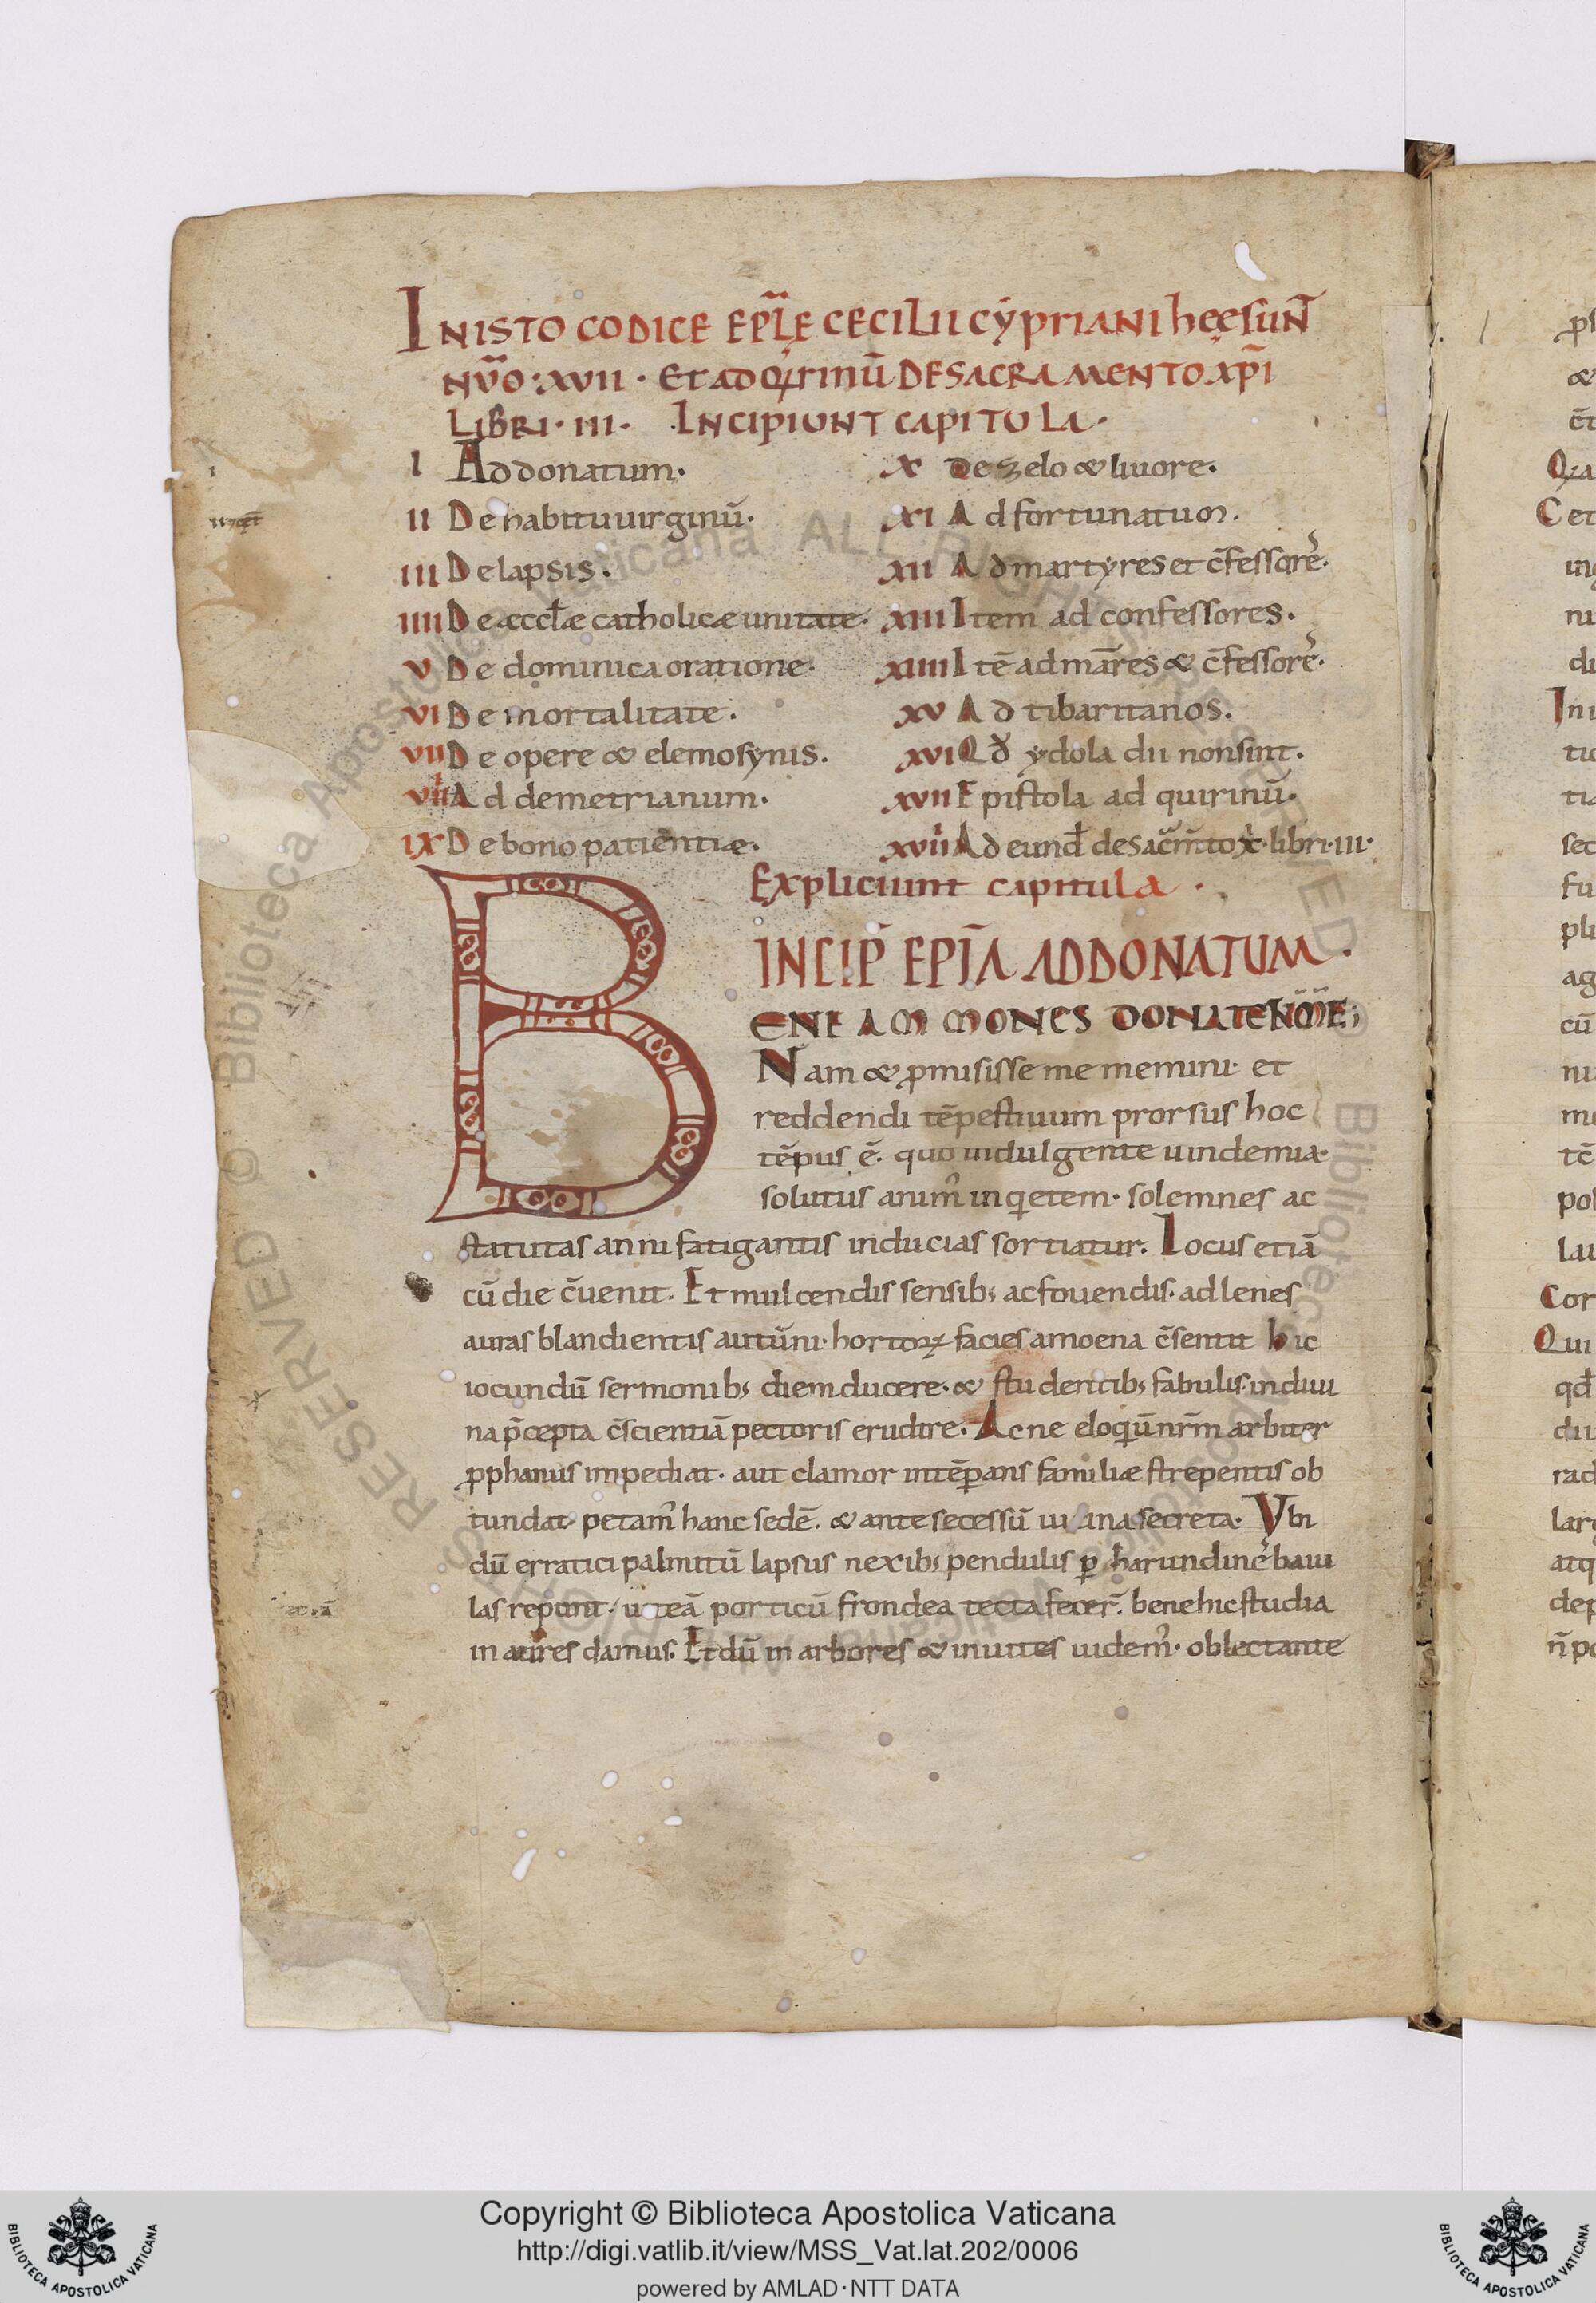 IN ISTO CODICE EPL̄E CECILII CYPRIANI hęc suNT̄
NV̄O: XVII · ET AD Q̇IRINŪ DE SACRAMENTO XP̄I
LIBRI · III · INCIPIUNT CAPITULA ·
I Ad donatum·
II De habitu uirginū·
III De lapsis·
IIII De æccłæ catholicæ unitate·
V De dominica oratione·
VI De mortalitate·
VII De opere & elemosynis·
VIII Ad demetrianum·
IX De bono patientiæ·
X De zelo & liuore·
XI Ad fortunatum·
XII Ad martyres et c̄fessores·
XIII Item ad confessores·
XIIII Itē ad mār̄es & c̄fessores·
XV Ad tibaritanos·
XVI Qđ ydola dii non sint·
XVII Epistola ad quirinū·
XVIII Ad eunđ de sacm̄to x̄ · libri · III ·
Expliciunt capitula ·
INCIP̄ EPL̄A AD DONATUM ·
BENE AMMONES DONATE
Nam & ꝓmisisse me memini· et
reddendi tēpestiuum prorsus hoc
tēpus ē· quo indulgente uindemia·
solutus anim᷒ in qietem· solemnes ac
statutas anni fatigantis inducias sortiatur. Locus etiā
cū die c̄uenit. Et mulcendis sensib; ac fouendis· ad lenes
auras blandientis autūni· hortoꝝ facies amoena c̄sentit hic
iocundū sermonib; diem ducere· & studentib; fabulis· in diui
na p̄cepta c̄scientiā pectoris erudire· Ac ne eloqiū nr̄m arbiter
ꝓphanus impediat· aut clamor intēꝑans familiæ strepentis ob
tundat petam᷒ hanc sedē· & ante secessū uicina secreta· Vbi
dū erratici palmitū lapsus nexib; pendulis ꝑ harundines baiu
las repunt· uiteā porticū frondea tecta fecer̄· bene hic studia
in aures damus. Et dū in arbores & in uites uidem᷒· oblectante
Copyright © Biblioteca Apostolica Vaticana
http://digi.vatlib.it/view/MSS_Vat.lat.202/0006
powered by AMLAD·NTT DATA